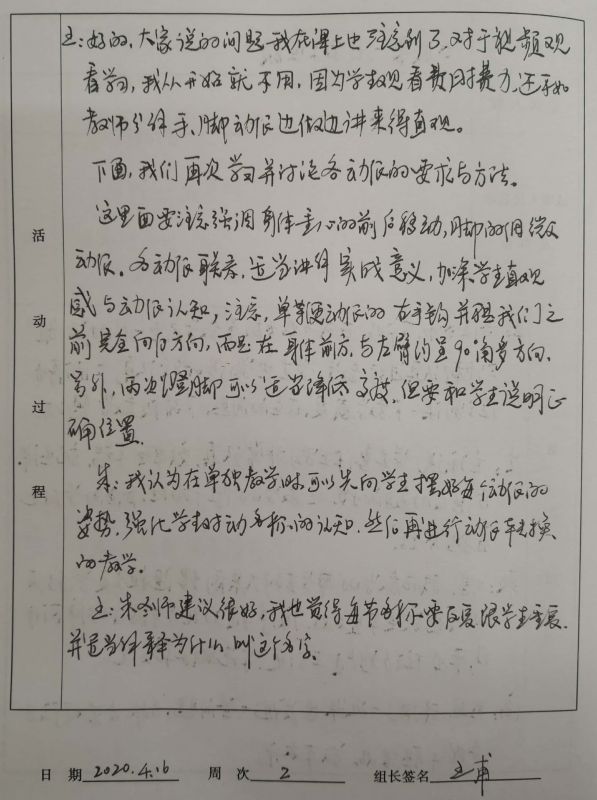 王:好的,大家说的问题我在课上也注意到了,对于视频观
看学习,我从开始就不用,因为学生观看费时费力,还不如
教师分解手、脚动作边做边讲来得直观。
下面,我们再次学习并讨论各动作的要求与方法。
这里面要注意强调身体重心的前后移动,脚的细微
动作。各动作联系,适当讲解实战意义,加深学生直观
感与动作认知,注意,单鞭动作的右手钩并非我们之
前完全向后方向,而是在身体前方,与左臂约呈90°角多方向,
另外,两次蹬脚可以适当降低高度,但要和学生说明正
确位置。
朱:我认为在单独教学时可以先向学生摆好每个动作的
姿势,强化学生对动名称的认知,然后再进行动作转换
的教学。
王:朱老师建议很好,我也觉得每节名称要反复跟学生重复,
并适当解释为什么叫这个名字。
活
动
过
程
日 期 2020.4.16 周 次 2 组长签名 王甫